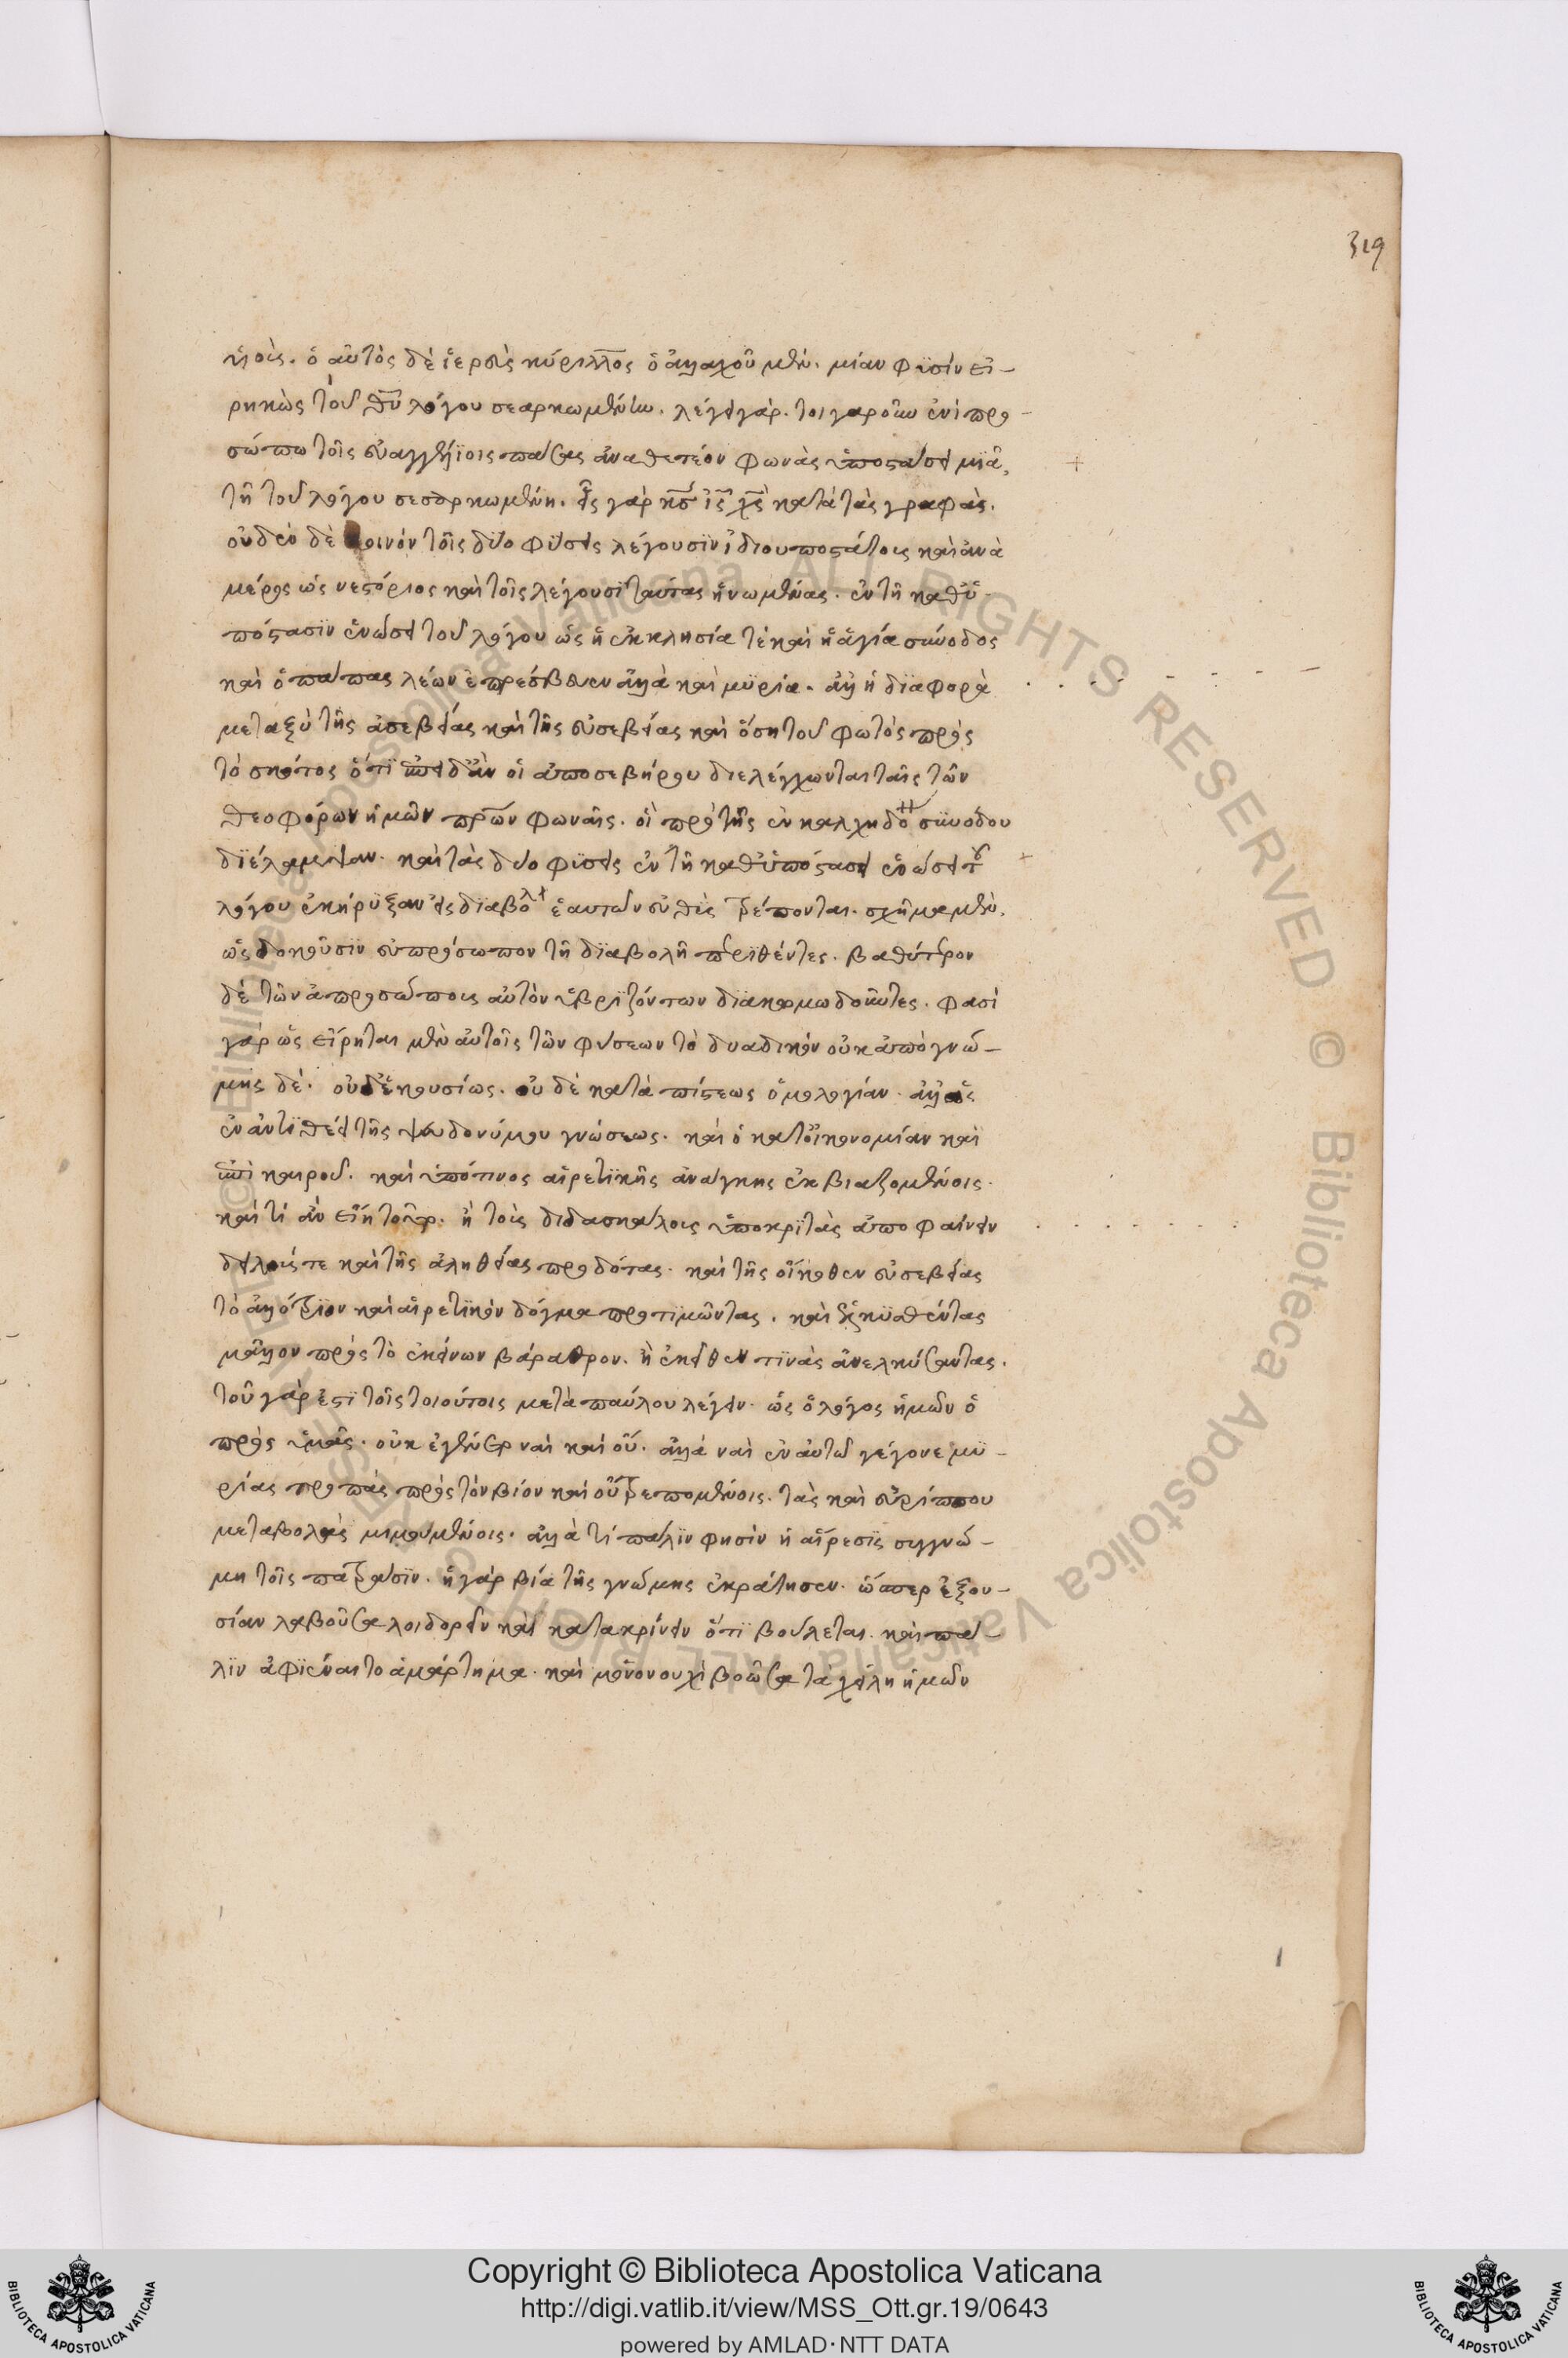 319
ὁ αὐτὸς δὲ ἱερὸς κύριλλος ὁ ἀλλαχοῦ μὲν. μίαν φύσιν εἰ-
ρηκὼς τοῦ θυ λόγου σεσαρκωμένην. λέγει γάρ. τοιγαροῦν ἑνὶ προ-
σώπω τοῖς εὐαγγελίοις πάσας ἀναθετέον φωνὰς ὑποστάσει μιᾶ,
τῆ τοῦ λόγου σεσαρκωμένη. εἷς γὰρ κς ις χς κατὰ τὰς γραφάς.
οὐδὲν δὲ κοινὸν τοῖς δύο φύσεις λέγουσιν ἰδιουποστάτους καὶ ἀνὰ
μέρος ὡς νεστόριος καὶ τοῖς λέγουσι ταύτας ἡνωμένας. ἐν τῆ καθ' ὑ-
πόστασιν ἑνώσει τοῦ λόγου ὡς ἡ ἐκκλησία τὲ καὶ ἡ ἁγία σύνοδος
καὶ ὁ πάπας λέων ἐπρέσβευεν ἀλλὰ καὶ μυρία. ἀλλ' ἡ διαφορὰ
μεταξὺ τῆς ἀσεβείας καὶ τῆς εὐσεβείας καὶ ὅση τοῦ φωτὸς πρὸς
τὸ σκότος ὅτι ἐπειδὰν οἱ ἀπὸ σεβήρου διελέγχωνται ταῖς τῶν
θεοφόρων ἡμῶν πρων φωναῖς. οἳ πρὸ τῆς ἐν καλχηδο συνόδου
διέλαμψαν. καὶ τὰς δύο φύσεις ἐν τῆ καθ' ὑπόστασι ἑνώσει τοῦ
λόγου ἐκήρυξαν εἰς διαβολ ἑαυτῶν εὐθὺς τρέπονται. σχῆμα μὲν,
ὡς δοκοῦσιν εὐπρόσωπον τῆ διαβολῆ περιθέντες. βαθύτερον
δὲ τῶν ἀπροσώπως αὐτὸν ὑβριζόντων διακωμωδοῦντες. φασὶ
γὰρ ὡς εἴρηται μὲν αὐτοῖς τῶν φύσεων τὸ δυαδικὸν οὐκ ἀπὸ γνώ-
μης δέ. οὐδ' ἑκουσίως. οὐ δὲ κατὰ πίστεως ὁμολογίαν. ἀλλ' ὡς
ἐν ἀντιθέσει τῆς ψευδονύμου γνώσεως. καὶ ὁ κατ' οἰκονομίαν καὶ
ἐπὶ καιροῦ. καὶ ὑπό τινος αἱρετικῆς ἀνάγκης ἐκβιαζομένοις.
καὶ τί ἂν εἴη ἢ τοὺς διδασκάλους ὑποκριτὰς ἀποφαίνειν
δειλούς τε καὶ τῆς ἀληθείας προδότας. καὶ τῆς οἴκοθεν εὐσεβείας
τὸ ἀλλότριον καὶ αἱρετικὸν δόγμα προτιμῶντας. καὶ ἑλκυσθέντας
μᾶλλον πρὸς τὸ ἐκείνων βάραθρον. ἢ ἐκεῖθεν τινὰς ἀνελκύσαντας.
τοῦ γὰρ ἔστι τοῖς τοιούτοις μετὰ παύλου λέγειν. ὡς ὁ λόγος ἡμῶν ὁ
πρὸς ὑμᾶς. οὐκ ἐγένετο ναὶ καὶ οὔ. ἀλλὰ ναὶ ἐν αὐτῶ γέγονε μυ-
ρίας τροπὰς πρὸς τὸν βίον καὶ οὐ τρεπομένοις. τὰς καὶ εὐρίπου
μεταβολὰς μιμουμένοις. ἀλλὰ τί πάλιν φησὶν ἡ αἵρεσις συγγνώ-
μη τοῖς πατράσιν. ἡ γὰρ βία τῆς γνώμης ἐκράτησεν. ὥσπερ ἐξου-
σίαν λαβοῦσα λοιδορεῖν καὶ κατακρίνειν ὅτι βούλεται. καὶ πά-
λιν ἀφιέναι τὸ ἁμάρτημα. καὶ μονονουχὶ βοῶσα τὰ χείλη ἡμῶν
Copyright © Biblioteca Apostolica Vaticana
http://digi.vatlib.it/view/MSS_Ott.gr.19/0643
powered by AMLAD·NTT DATA